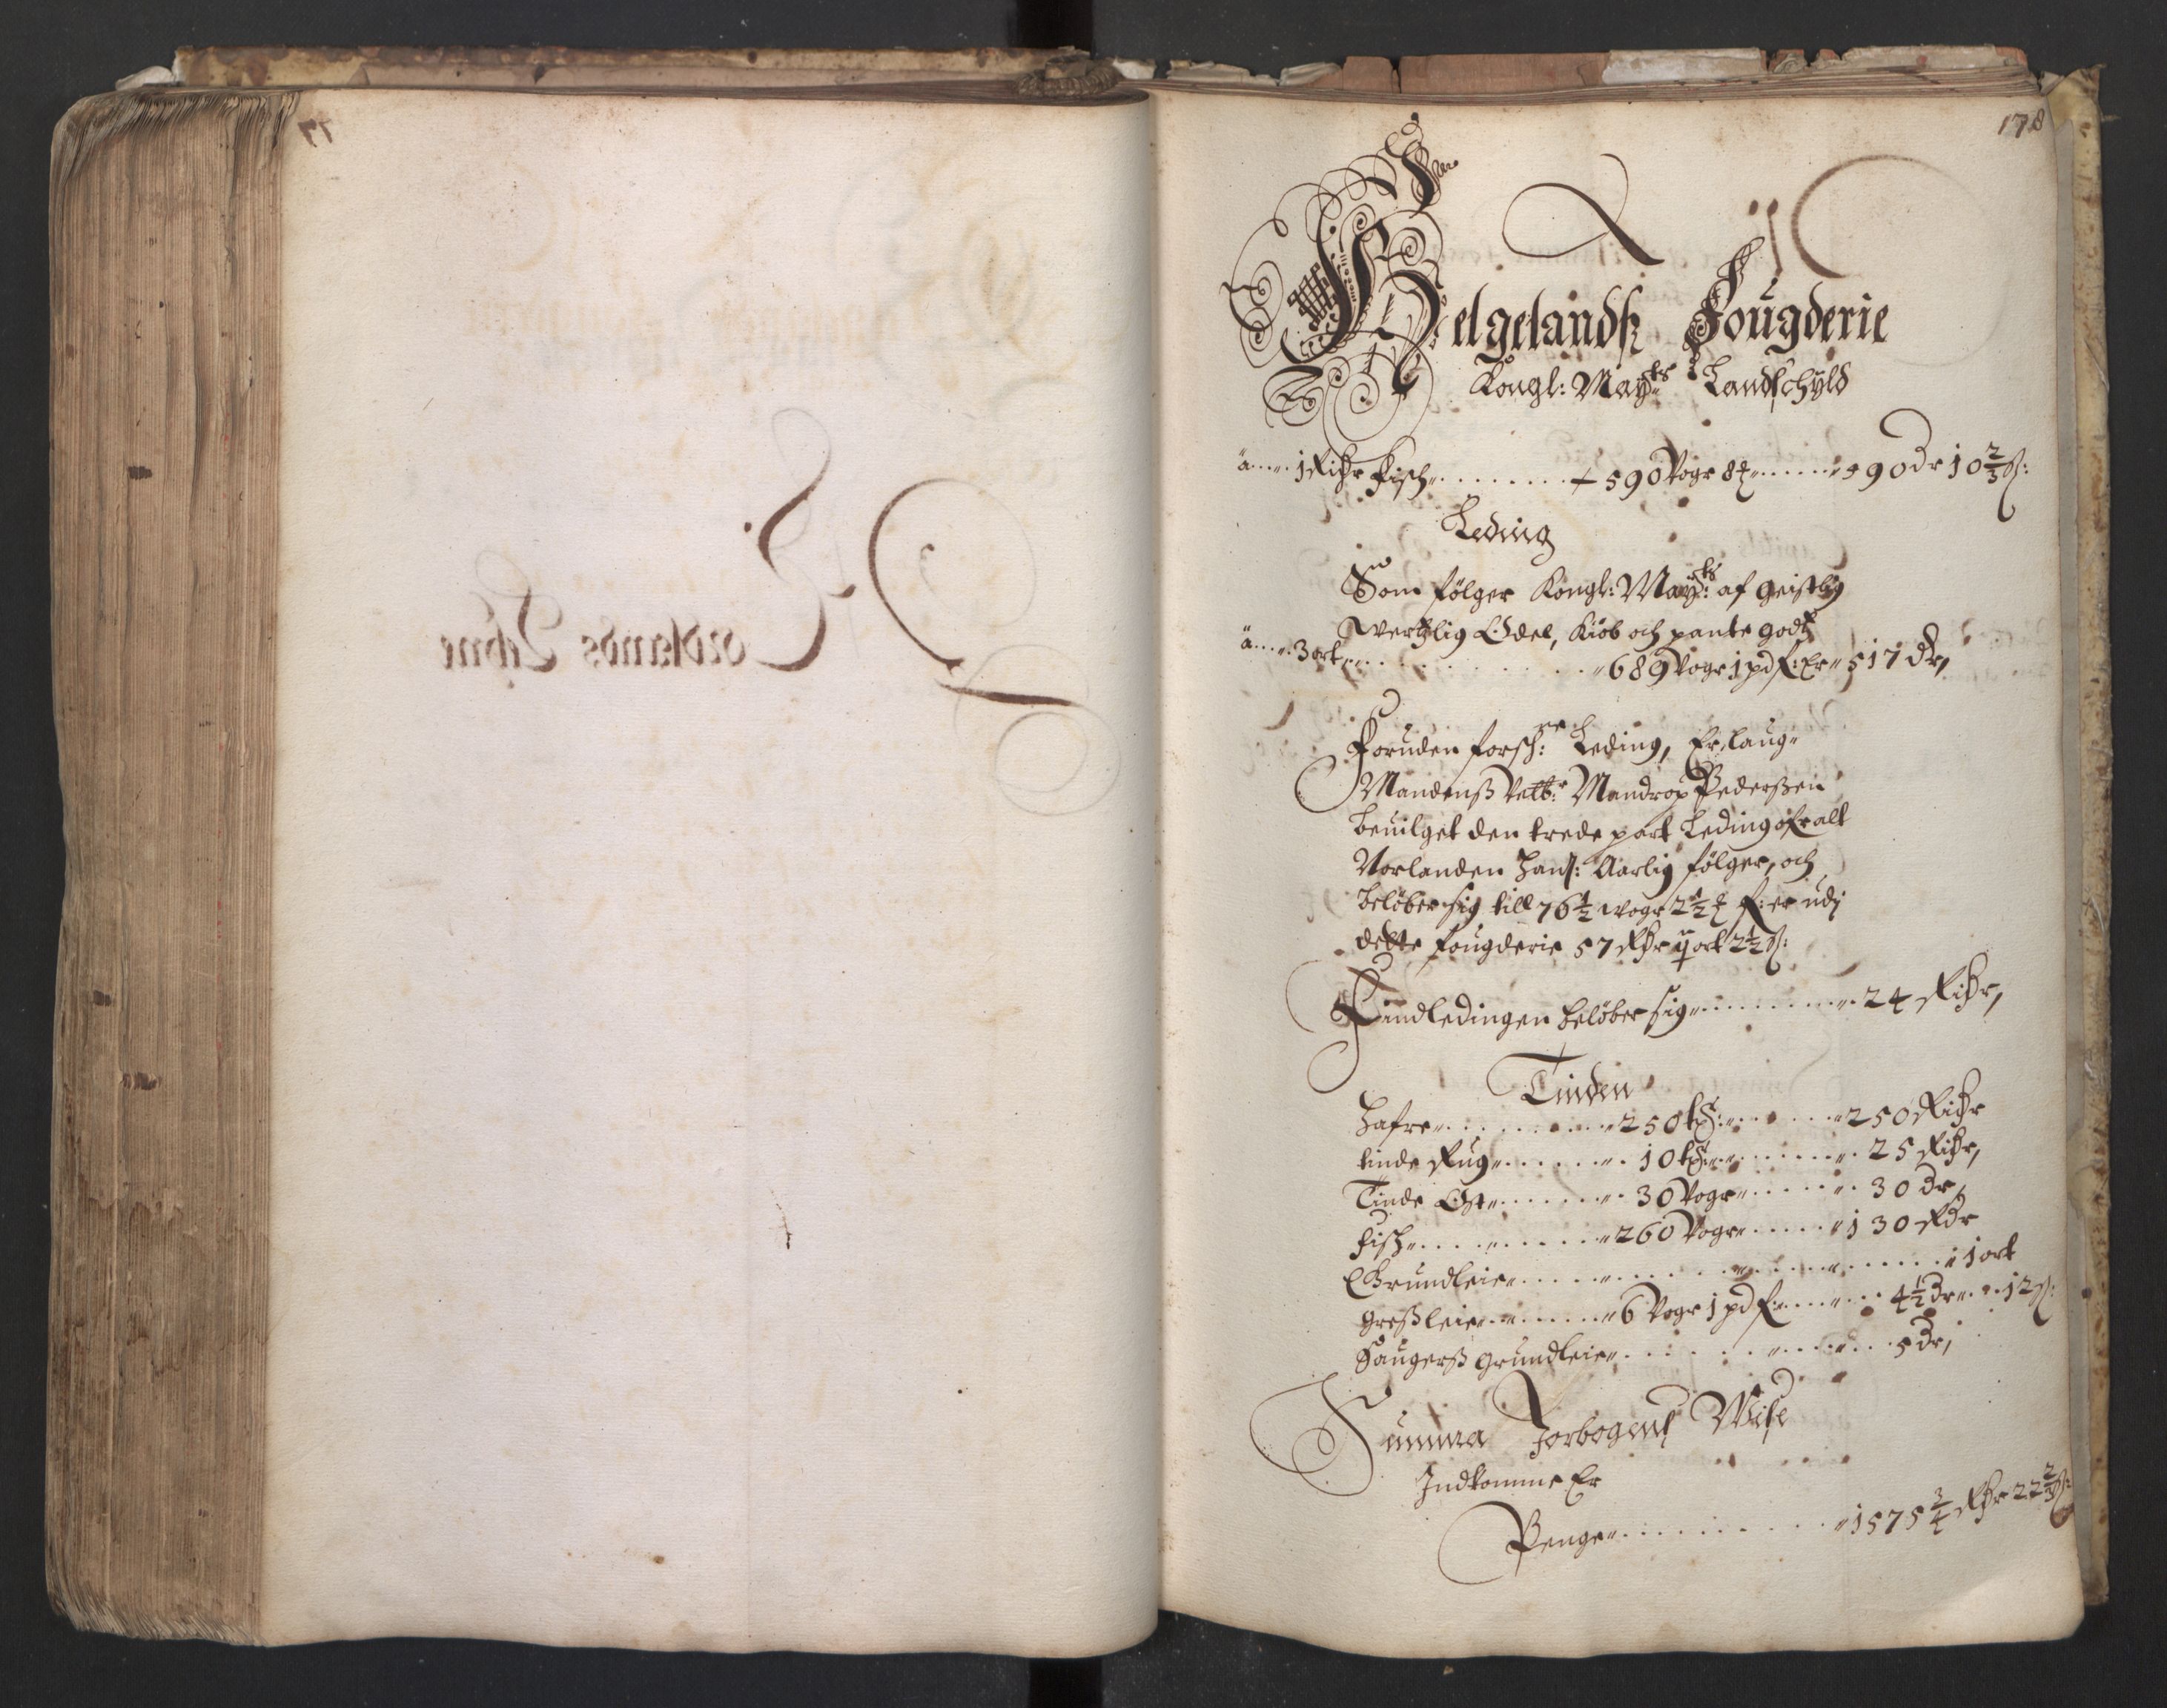 178
Helgelandß Fougderie
Kongl: Maytz Landschyld
a 1 Richsdr Fisch 590 Voger 8 590 dr 10 2/3 ß:
Leding
Som følger Kongl: Maytz: af geistlig
wertzlig Odel, Kiøb och pante godtz
a 3 ort 689 Voger 1 pd f: Er 517 dr,
Foruden forsch:ne Leding, Er laug
Mandenß Velb:r Mandrop Pederßen
beuilget den trede part Leding ofr alt
Norlanden hans: Aarlig følger, och
beløber sig till 76 1/2 woger 2 1/2 f: er udj
dette fougderie 57 Rdr ij ort 2 1/2 ß:
Findledingen beløber sig 24 Richsdr,
Tinden
Hafre 250 tdr: 250 Richsdr
tinde Rug 10 tdr 25 Richsdr,
Tinde Ost 30 Voger 30 dr,
Fisch 260 Voger 130 Rdr
Grundleie 1 ort
Greßleie 6 Voger 1 pd f 4 1/2 dr 12 ß:
Saugerß grundleie 5 dr,
Summa Jorbogenß Wise
Indkomme Er
Penge 1575 3/4 Rdr 22 2/3 ß: